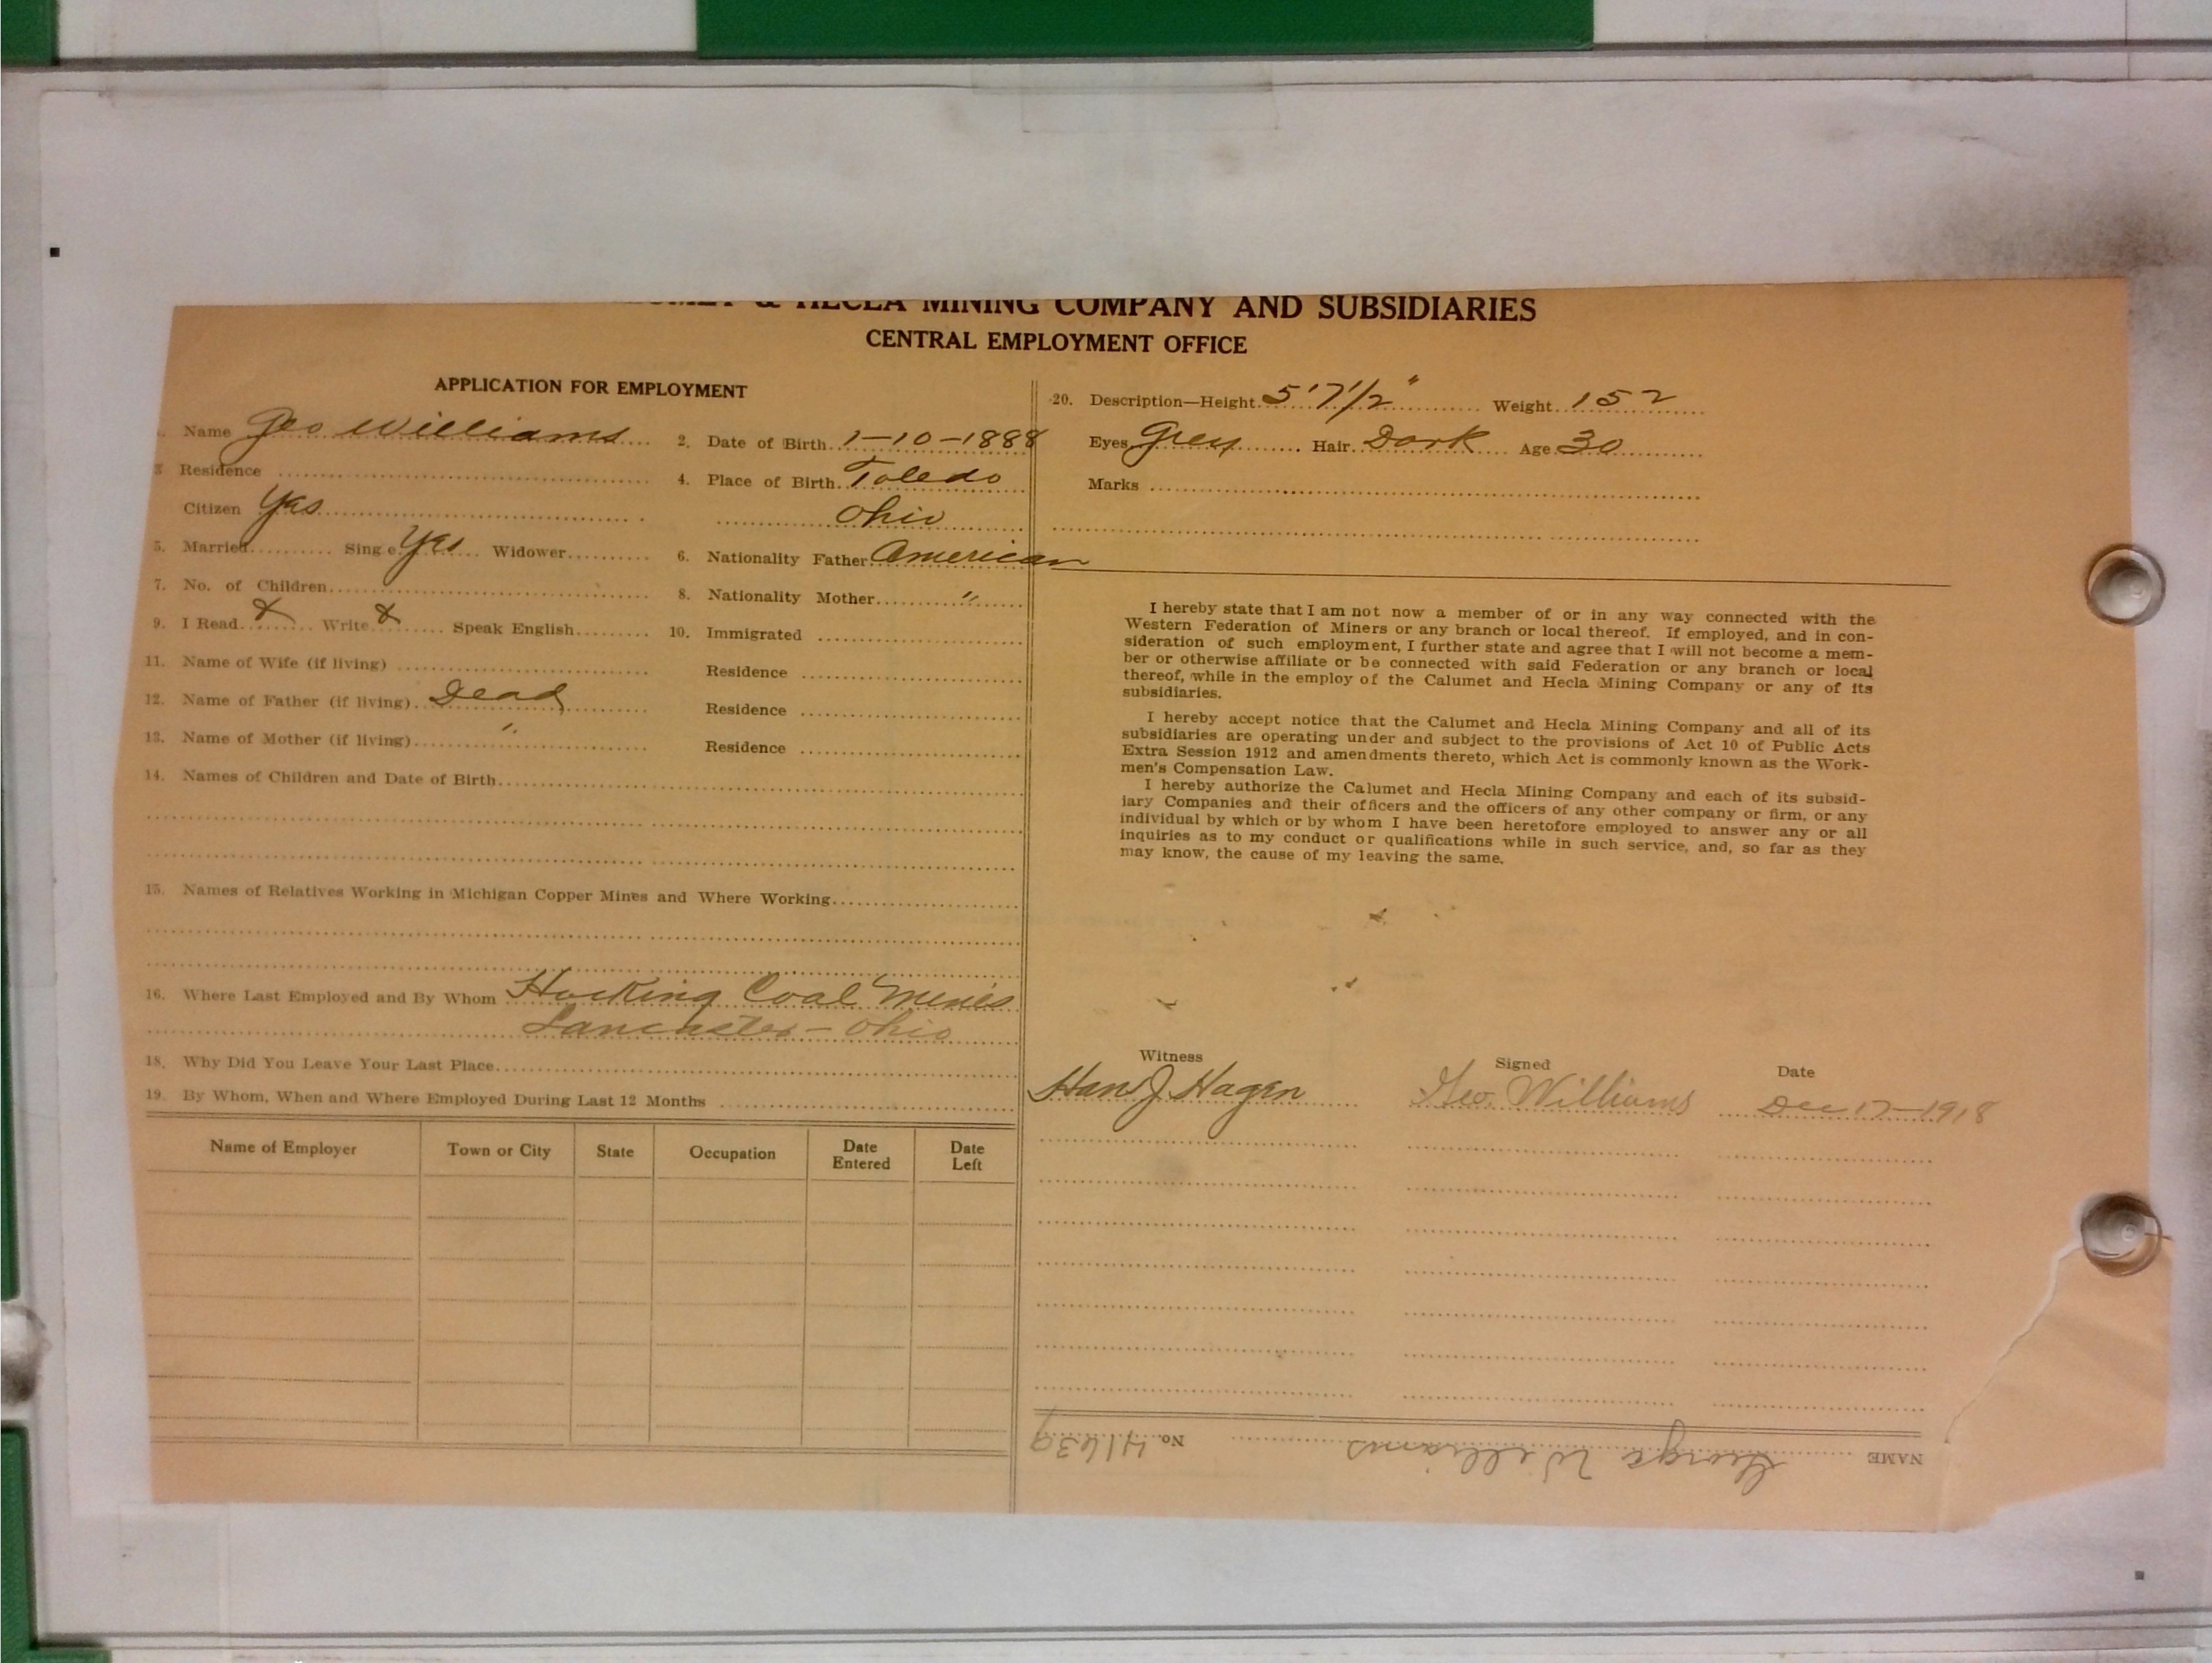 & HECLA MINING COMPANY AND SUBSIDIARIES
CENTRAL EMPLOYMENT OFFICE
APPLICATION FOR EMPLOYMENT
Name Geo Williams
2. Date of Birth 1-10-1888
3 Residence
4. Place of Birth Toledo
Citizen Yes
Ohio
5. Married Sing e Yes Widower
6. Nationality Father American
7. No. of Children
8. Nationality Mother "
9. I Read x Write x Speak English
10. Immigrated
11. Name of Wife (if living)
Residence
12. Name of Father (if living) Dead
Residence
13. Name of Mother (if living) "
Residence
14. Names of Children and Date of Birth
15. Names of Relatives Working in Michigan Copper Mines and Where Working
16. Where Last Employed and By Whom Hocking Coal Mines
Lancaster - Ohio
18. Why Did You Leave Your Last Place
19. By Whom, When and Where Employed During Last 12 Months
Name of Employer Town or City State Occupation Date Entered Date Left
20. Description—Height 5'7 1/2" Weight 152
Eyes Grey Hair Dark Age 30
Marks
I hereby state that I am not now a member of or in any way connected with the
Western Federation of Miners or any branch or local thereof. If employed, and in con-
sideration of such employment, I further state and agree that I will not become a mem-
ber or otherwise affiliate or be connected with said Federation or any branch or local
thereof, while in the employ of the Calumet and Hecla Mining Company or any of its
subsidiaries.
I hereby accept notice that the Calumet and Hecla Mining Company and all of its
subsidiaries are operating under and subject to the provisions of Act 10 of Public Acts
Extra Session 1912 and amendments thereto, which Act is commonly known as the Work-
men's Compensation Law.
I hereby authorize the Calumet and Hecla Mining Company and each of its subsid-
iary Companies and their officers and the officers of any other company or firm, or any
individual by which or by whom I have been heretofore employed to answer any or all
inquiries as to my conduct or qualifications while in such service, and, so far as they
may know, the cause of my leaving the same.
Witness Signed Date
Hans J. Hagen Geo. Williams Dec 17-1918
NAME George Williams No. 41639